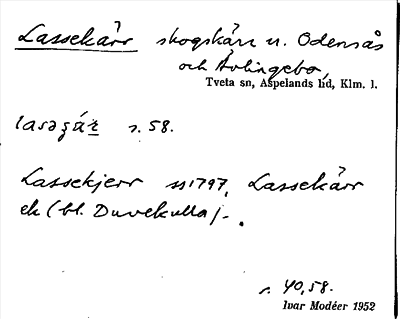 Lassekärr skogskärr u. Odensås
och Älvlingebo,
Tveta sn, Aspelands hd, Klm. l.
lasəgár s. 58.
Lassekjerr ss1797, Lassekärr
ek (bl. Duvekulla) -.
s. 40, 58.
Ivar Modéer 1952